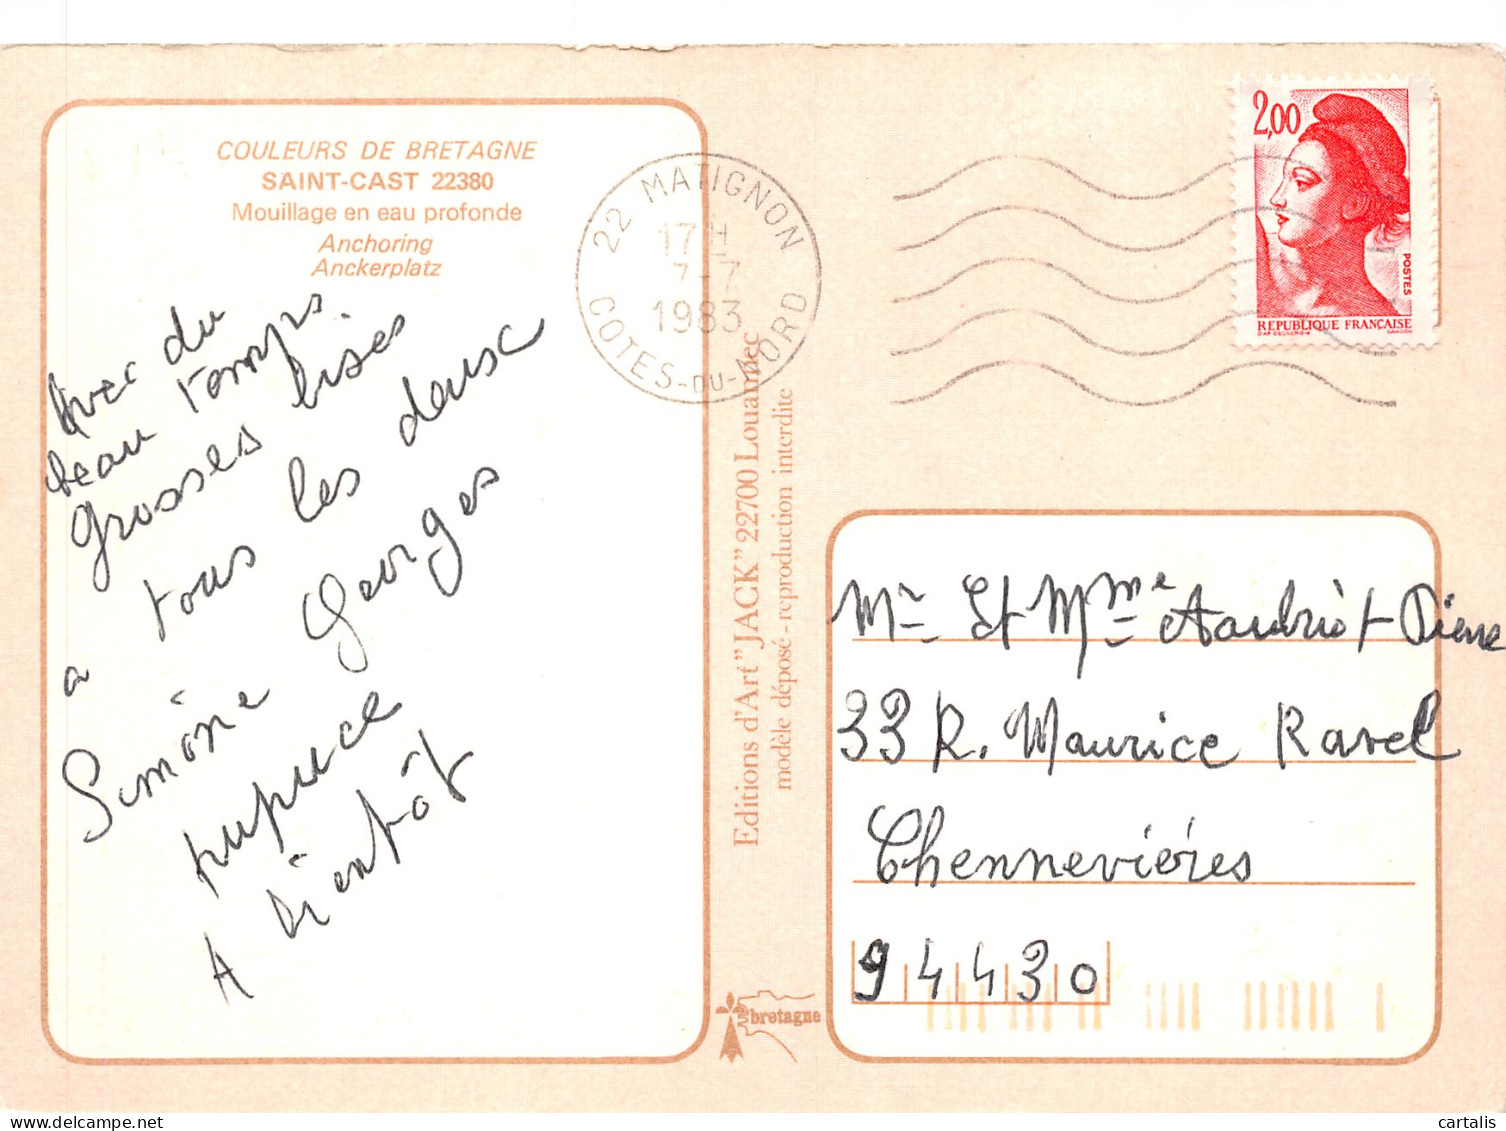 COULEURS DE BRETAGNE
SAINT-CAST 22380
Mouillage en eau profonde
Anchoring
Anckerplatz
Avec du
beau temps
grosses bises
a tous les deux
Simône Georges
A bientôt
22 MATIGNON
17 H
7-7
1983
COTES-DU-NORD
2,00
POSTES
REPUBLIQUE FRANÇAISE
Editions d'Art "JACK" 22700 Louannec
modèle déposé - reproduction interdite
bretagne
Mr Et Mme Pierre
33 R. Maurice Ravel
Chennevières
94430
cartalis